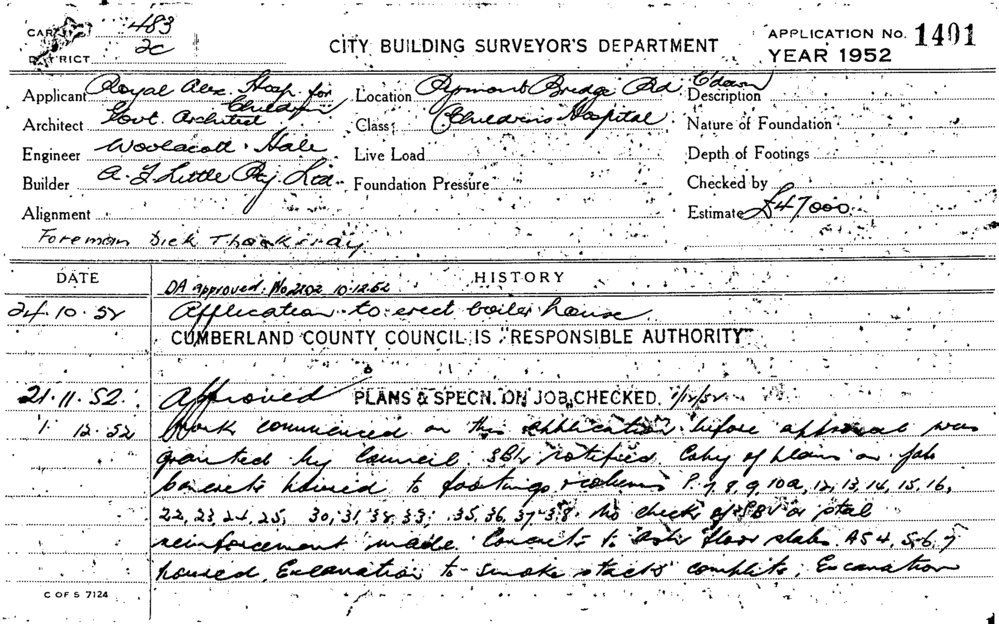 CARD No. 483
DISTRICT 2c
CITY BUILDING SURVEYOR'S DEPARTMENT
APPLICATION No. 1491
YEAR 1952
Applicant Royal Alex. Hosp. for Children
Location Pymont Bridge Rd C'down
Description
Architect Govt. Architect
Class Childrens Hospital
Nature of Foundation
Engineer Woolacott Hale
Live Load
Depth of Footings
Builder A. F Little Pty. Ltd.
Foundation Pressure
Checked by
Alignment
Estimate £47000
Foreman Dick Thackeray
DATE HISTORY
DA approved. No 2202 10.12.52
24.10.52 Application to erect boiler house
CUMBERLAND COUNTY COUNCIL IS "RESPONSIBLE AUTHORITY"
21.11.52 Approved PLANS & SPECN. ON JOB CHECKED. 1/12/52
1 12.52 Work commenced on this application before approval was
granted by Council. notified. Copy of plans on job
Concrete poured to footings columns P. 7, 8, 9, 10a, 12, 13, 14, 15, 16,
22, 23, 24, 25, 30, 31, 32, 33, 35, 36, 37, 38. No check of
reinforcement made. Concrete to floor slabs. AS 4, 5, 6, 7
poured. Excavation to smoke stacks complete, Excavation
C OF S 7124